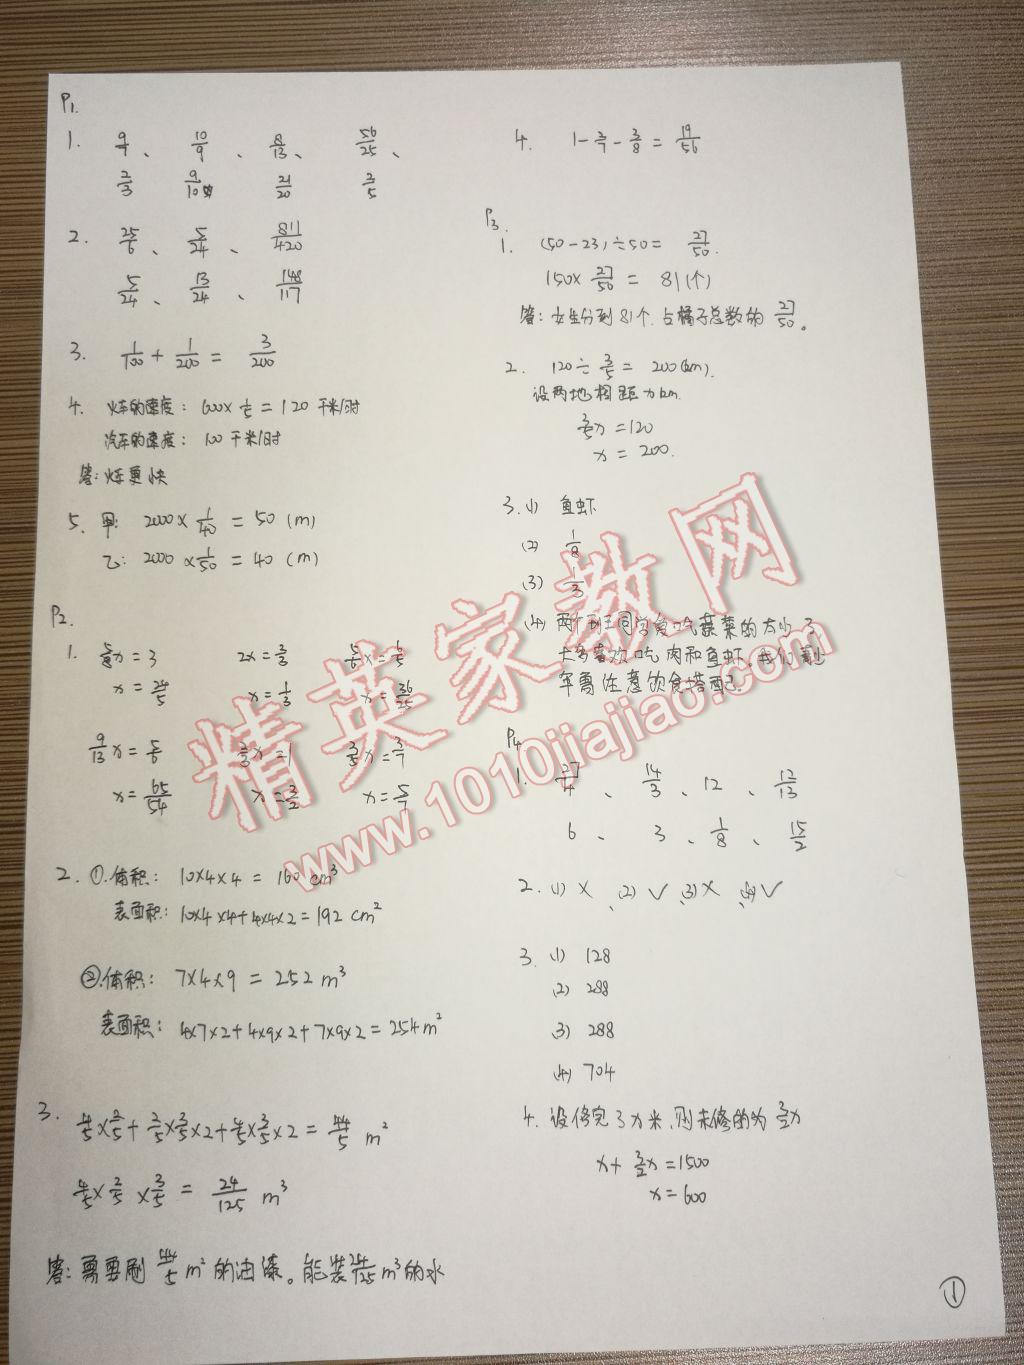 P1.
1. 9/7、 10/9、 8/13、 56/25、
2/3 9/10 21/20 2/5
2. 25/6、 5/24、 811/420
5/24、 13/24、 148/117
3. 1/100 + 1/200 = 3/200
4. 火车的速度: 600×1/5=120 千米/时
汽车的速度: 100千米/时
答: 火车更快
5. 甲: 2000×1/40 = 50 (m)
乙: 2000×1/50 = 40 (m)
P2.
1. 5/8x=3 2x=2/3 5/6x=6/5
x=24/5 x=1/3 x=36/25
9/13x=5/6 2/3x=1 3/5x=3/7
x=65/54 x=3/2 x=5/7
2. ①.体积: 10×4×4 = 160 cm³
表面积: 10×4×4+4×4×2=192 cm²
②.体积: 7×4×9 = 252 m³
表面积: 4×7×2+4×9×2+7×9×2=254m²
3. 4/5×2/5+2/5×3/5×2+4/5×3/5×2=44/5 m²
4/5×2/5×3/5 = 24/125 m³
答: 需要刷44/5m²的油漆。能装24/125m³的水
4. 1-3/7-3/8=19/56
P3.
1. (50-23)÷50= 27/50.
150×27/50 = 81(个)
答: 女生分到81个. 占橘子总数的27/50。
2. 120÷3/5= 200(km).
设两地相距x km.
3/5x=120
x=200.
3. (1) 鱼虾
(2) 1/8
(3) 1/3
(4) 两个班同学爱吃蔬菜的太少了
大多喜欢吃肉和鱼虾.我们
需注意饮食搭配
P4
1. 27/4、 14/3、12、 12/13
6、 3、1/8、 15/2
2. (1) ×、(2) √、(3) ×、(4) √
3. (1) 128
(2) 288
(3) 288
(4) 704
4. 设修完了x米,则未修的为3/2x
x+3/2x=1500
x=600
①
精英家教网
www.1010jiajiao.com